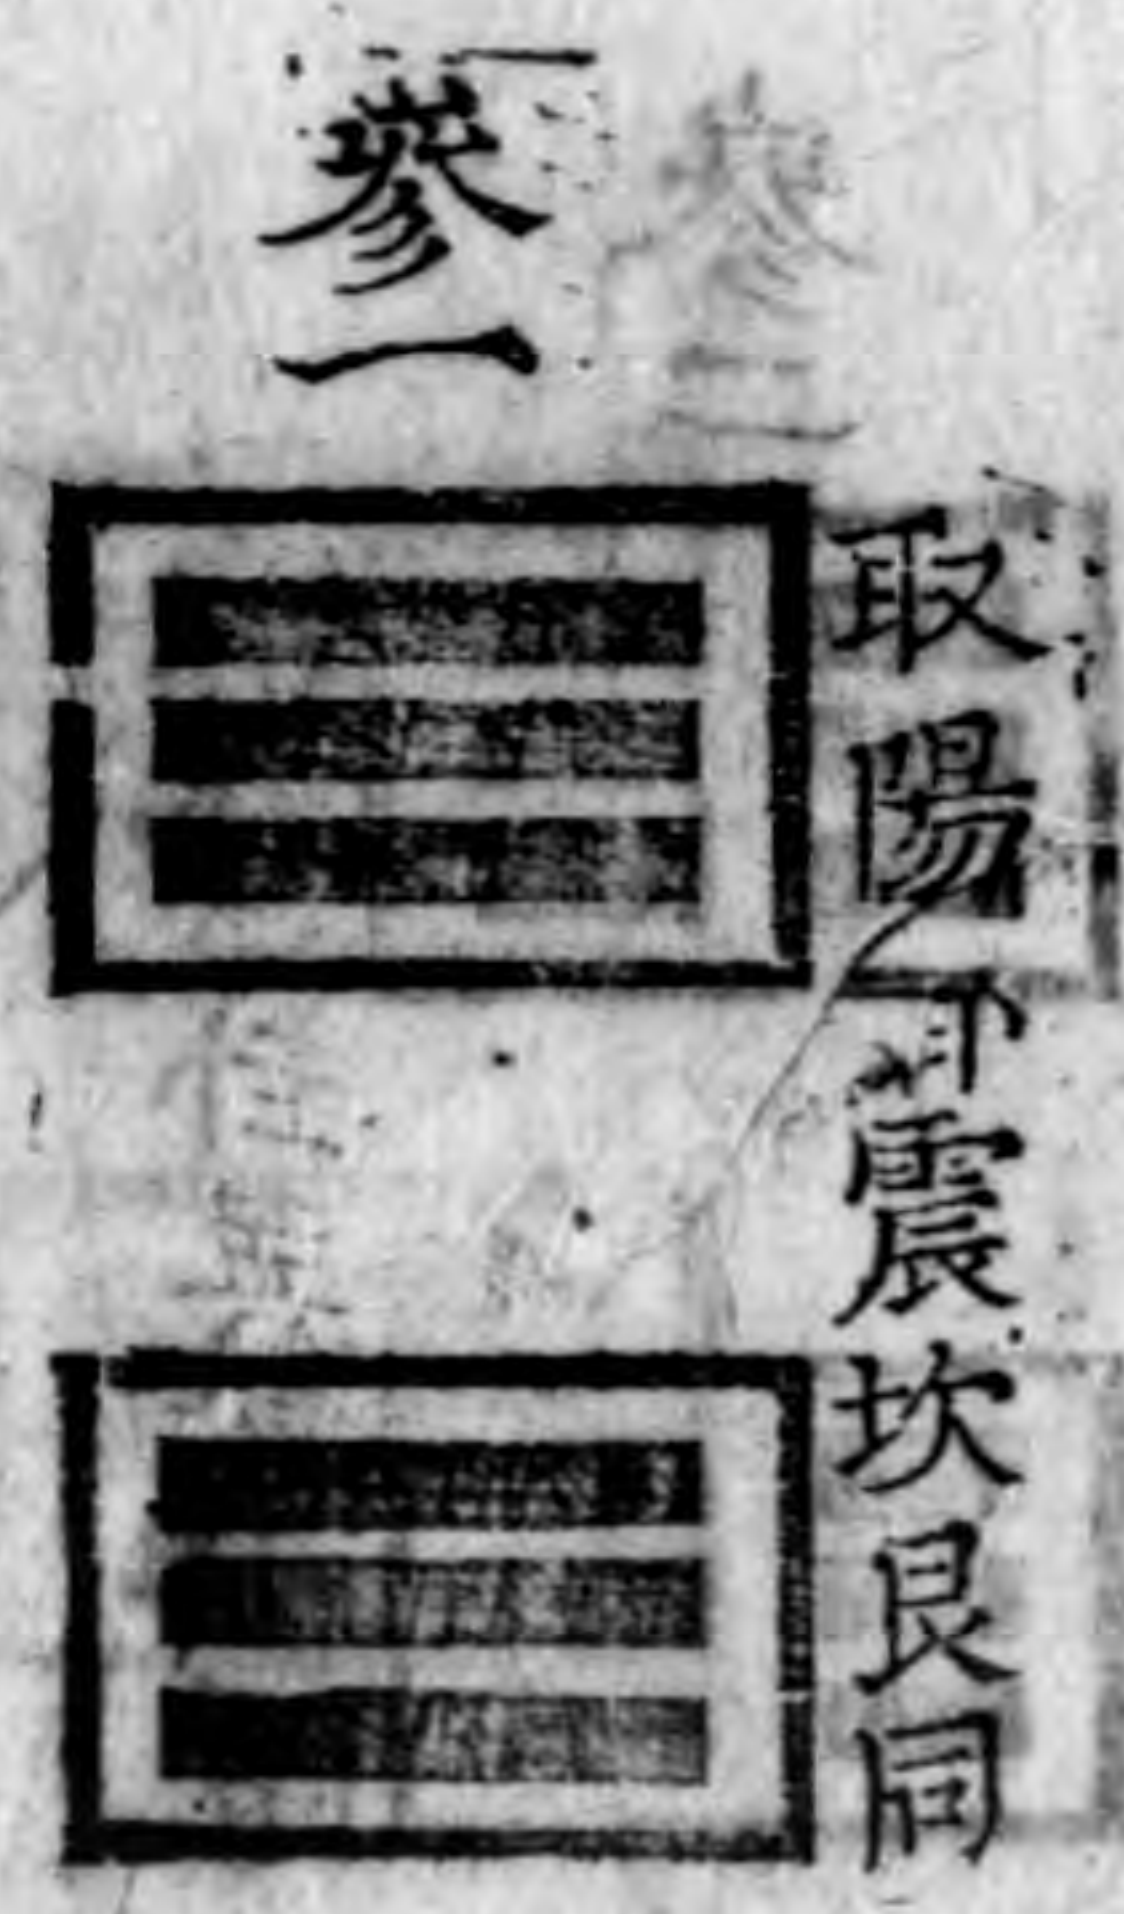 取陽
震坎艮同
參一